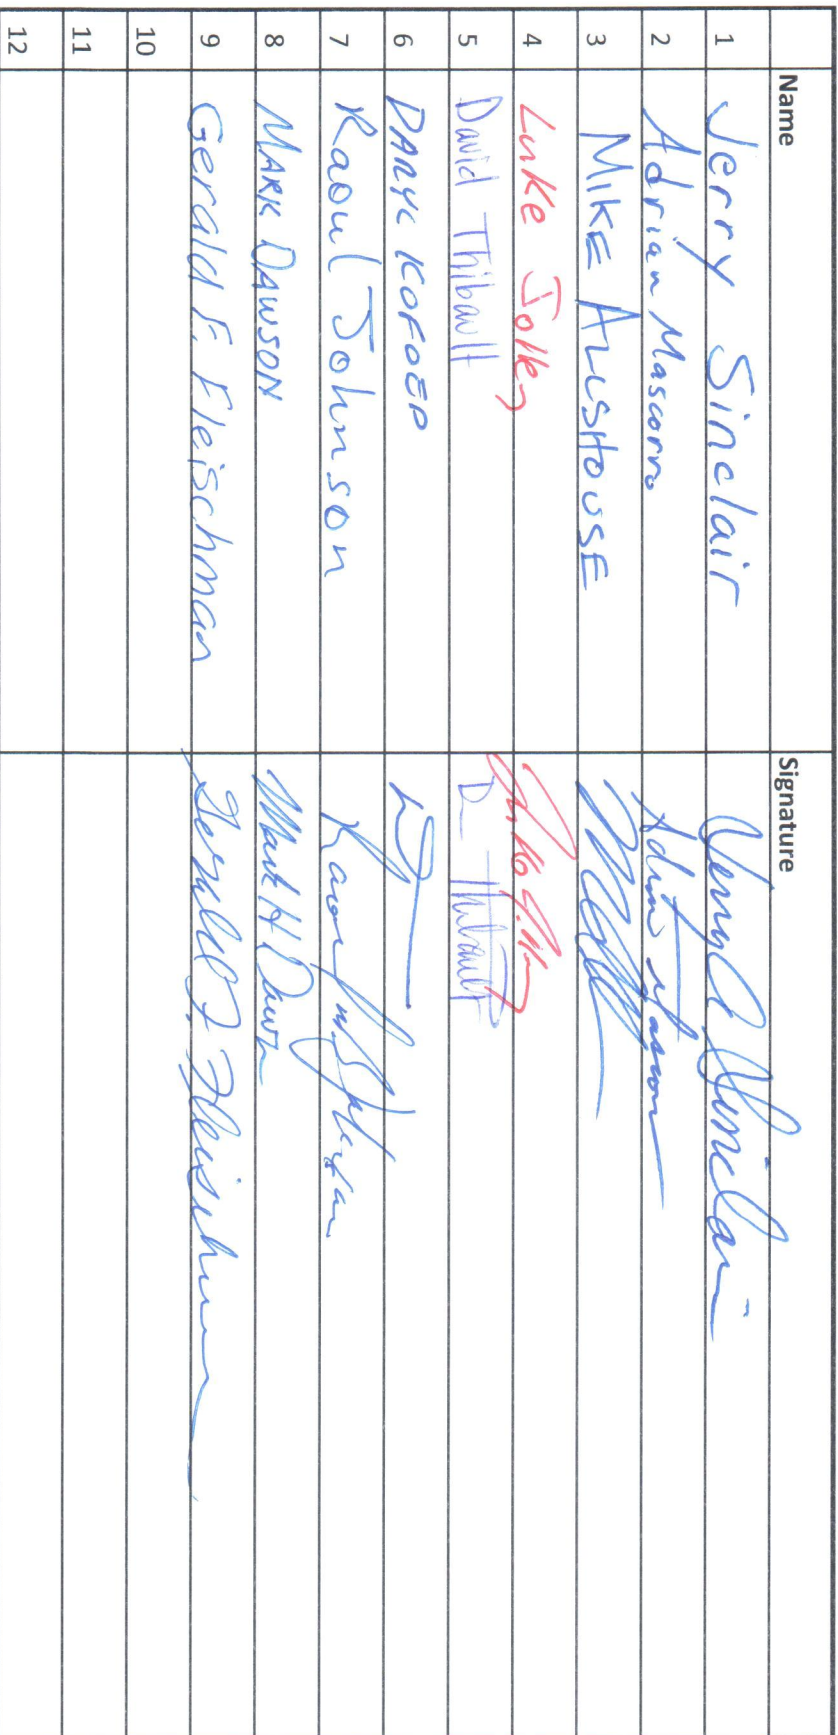 Name Signature
1 Jerry Sinclair Jerry A Sinclair
2 Adrian Mascorro Adrian Mascorro
3 MIKE ALLSHOUSE
4 Luke Jolley
5 David Thibault D Thibault
6 DARYL KOFOED
7 Raoul Johnson Raoul Johnson
8 MARK DAWSON Mark H Dawson
9 Gerald F. Fleischman Gerald F. Fleischman
10
11
12